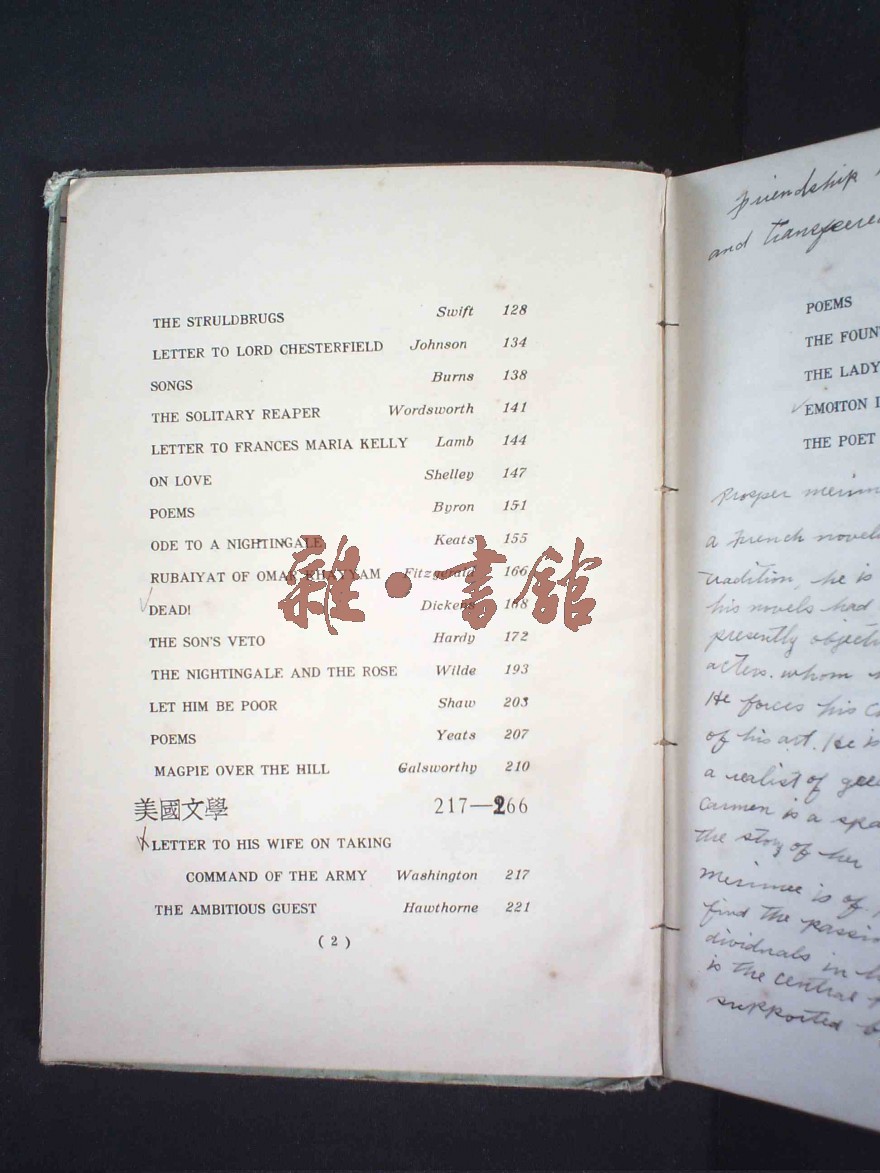 THE STRULDBRUGS Swift 128
LETTER TO LORD CHESTERFIELD Johnson 134
SONGS Burns 138
THE SOLITARY REAPER Wordsworth 141
LETTER TO FRANCES MARIA KELLY Lamb 144
ON LOVE Shelley 147
POEMS Byron 151
ODE TO A NIGHTINGALE Keats 155
RUBAIYAT OF OMAR KHAYYAM Fitzgerald 166
DEAD! Dickens 168
THE SON'S VETO Hardy 172
THE NIGHTINGALE AND THE ROSE Wilde 193
LET HIM BE POOR Shaw 203
POEMS Yeats 207
MAGPIE OVER THE HILL Galsworthy 210
美國文學 217—266
LETTER TO HIS WIFE ON TAKING
COMMAND OF THE ARMY Washington 217
THE AMBITIOUS GUEST Hawthorne 221
( 2 )
雜·書館
Friendship
and transfeered
POEMS
THE FOUN
THE LADY
EMOITON I
THE POET
Prosper merim
a French novel
tradition, he is
his novels had
presently object
acters. whom
He forces his c
of his art. He is
a realist of
Carmen is a spa
the story of her
Merimee is of
find the passi
dividuals in
is the central
supported b